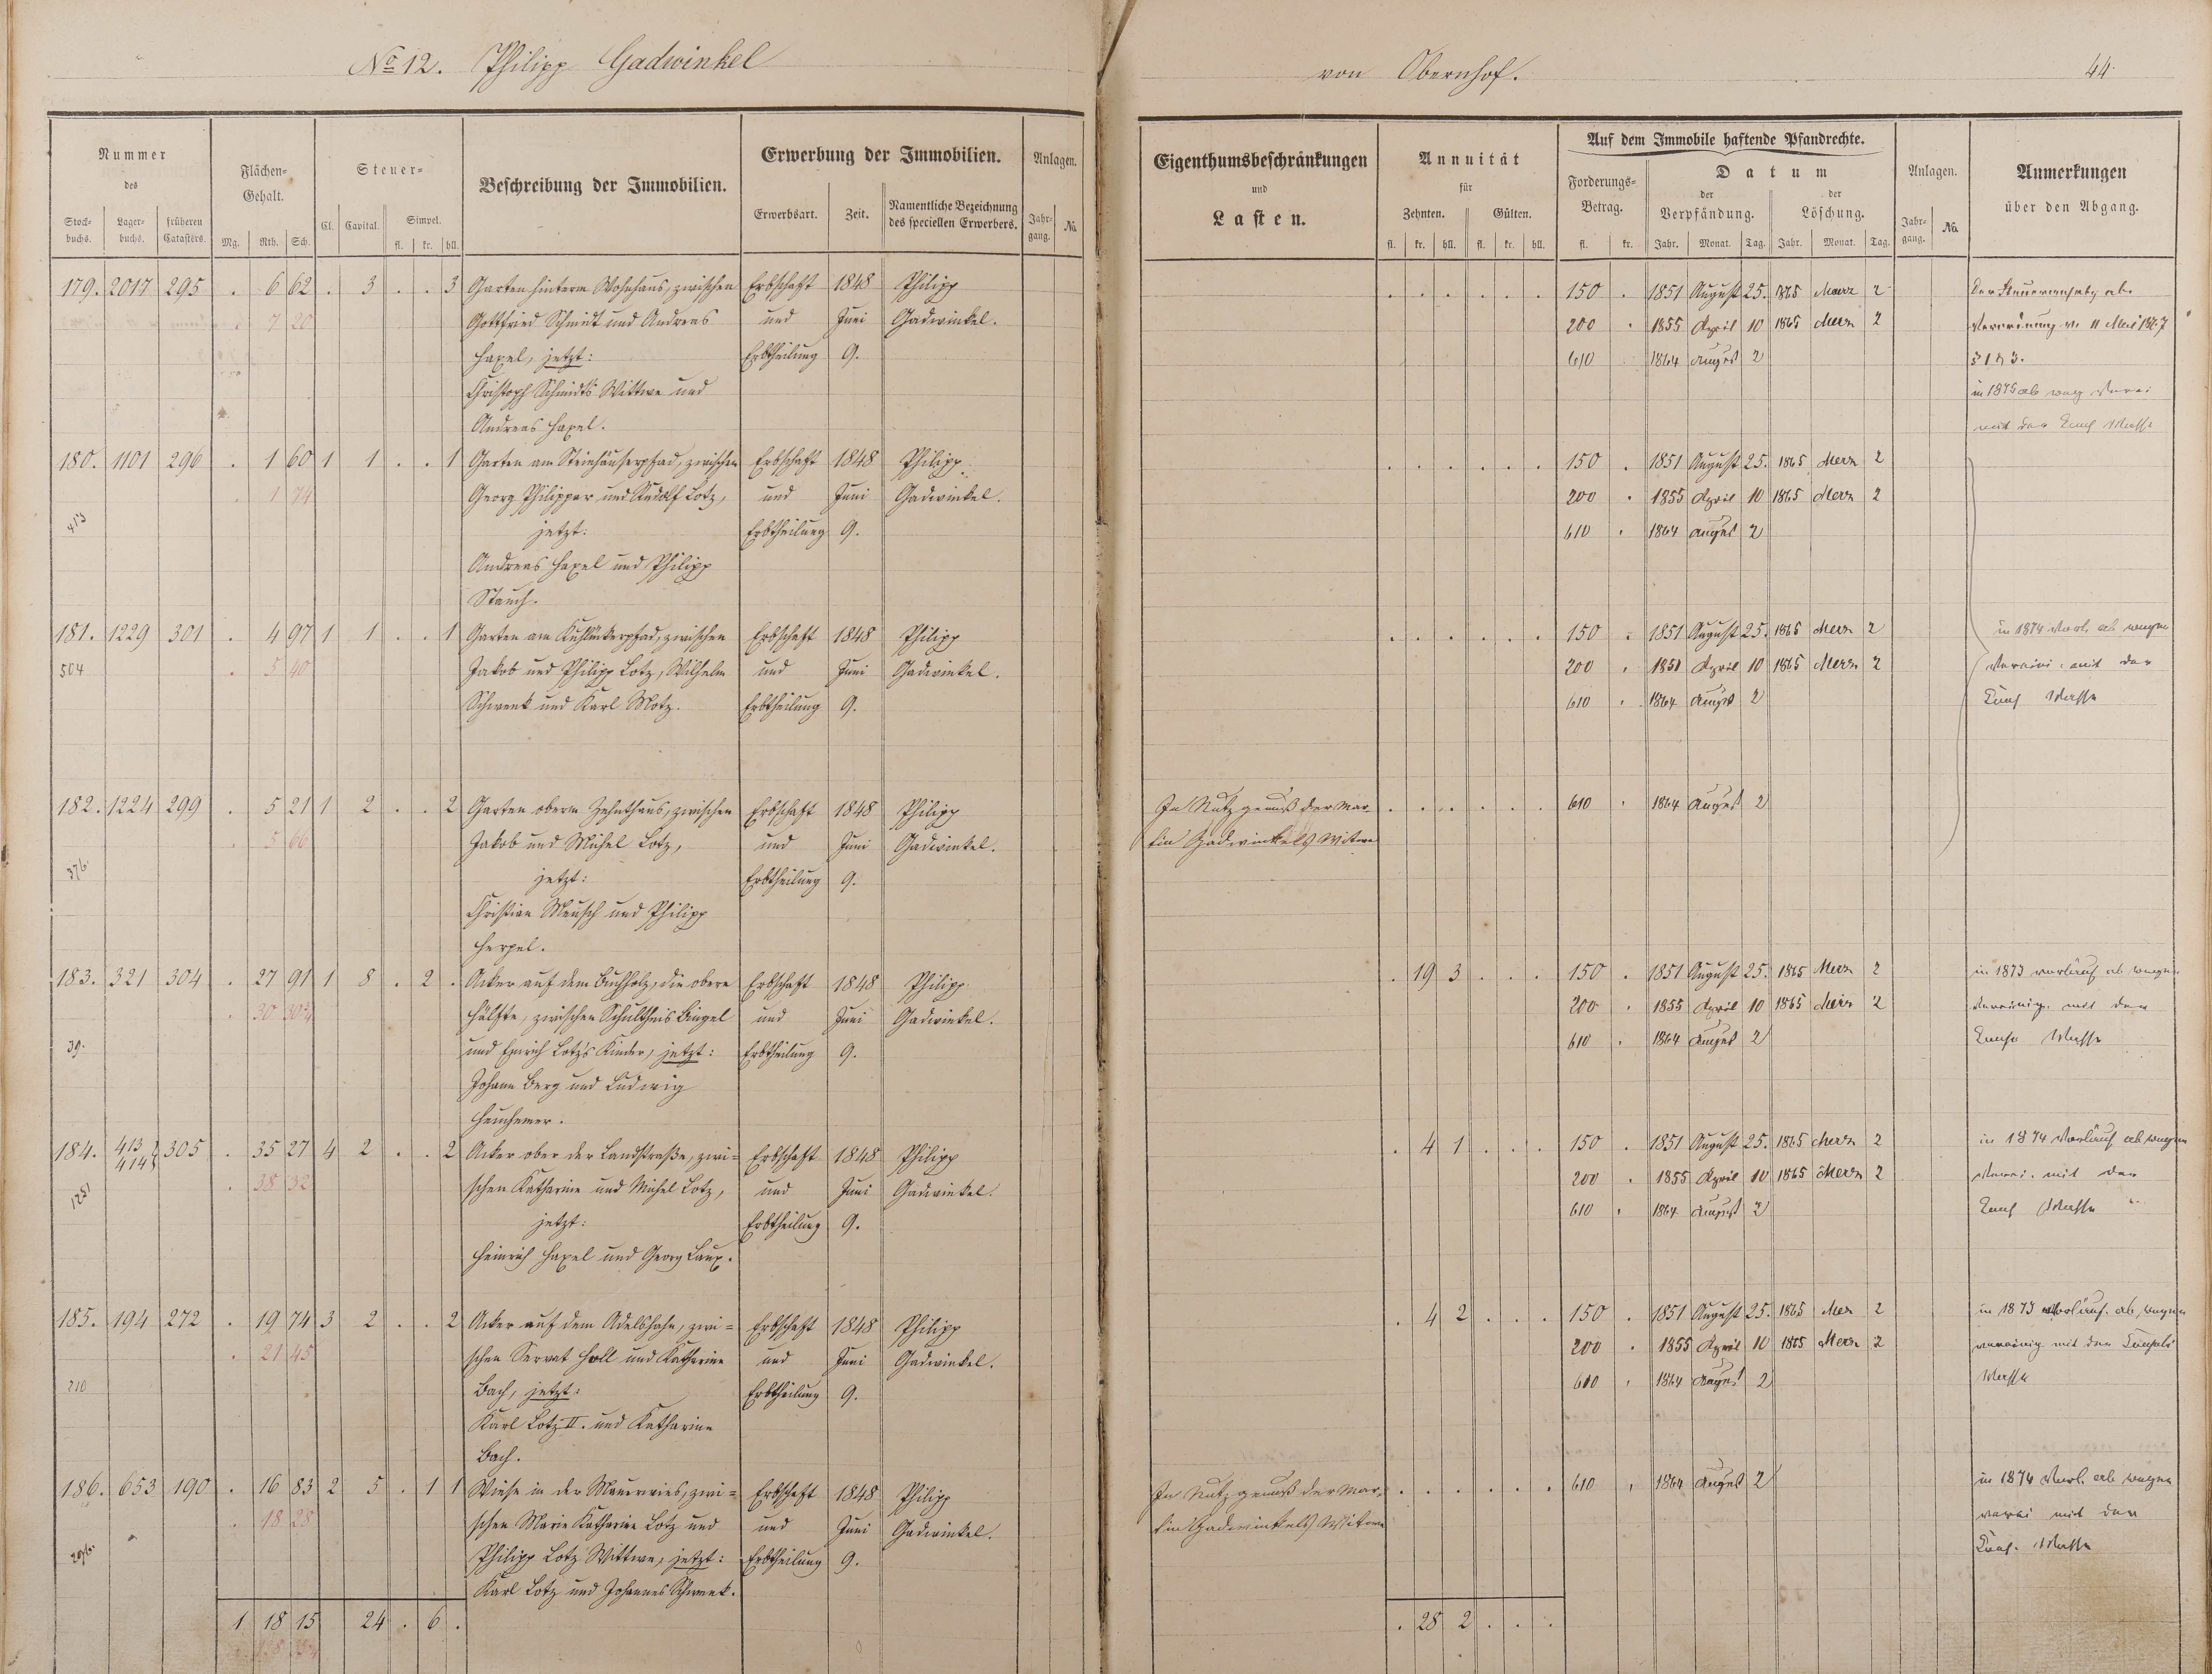 No 12. Philipp Gadwinkel
von Obernhof.
44.
Nummer des
Stockbuchs. Lagerbuchs. früheren Catasters.
Flächen-Gehalt.
Mg. Rth. Sch.
Steuer-
Cl. Capital. Simpel.
fl. kr. hll.
Beschreibung der Immobilien.
Erwerbung der Immobilien.
Erwerbsart. Zeit. Namentliche Bezeichnung des speciellen Erwerbers.
Anlagen.
Jahrgang. No.
Eigenthumsbeschränkungen und Lasten.
Annuität für
Zehnten. Gülten.
fl. kr. hll. fl. kr. hll.
Auf dem Immobile haftende Pfandrechte.
Forderungs-Betrag.
fl. kr.
Datum
der Verpfändung. der Löschung.
Jahr. Monat. Tag. Jahr. Monat. Tag.
Anlagen.
Jahrgang. No.
Anmerkungen über den Abgang.
179. 2017 295 . 6 62 . 3 . . 3 Garten hinterm Wohnhaus, zwischen Erbschaft 1848 Philipp
. 7 20 Gottfried Schmidt und Andreas und Juni Gadwinkel.
Hazel, jetzt: Erbtheilung 9.
Christoph Schmidts Wittwe und
Andreas Hazel.
180. 1101 296 . 1 60 1 1 . . 1 Garten am Steinhäuserpfad, zwischen Erbschaft 1848 Philipp
. 1 74 Georg Philippar und Rudolf Lotz, und Juni Gadwinkel.
413 jetzt: Erbtheilung 9.
Andreas Hazel und Philipp
Stauch.
181. 1229 301 . 4 97 1 1 . . 1 Garten am zwischen Erbschaft 1848 Philipp
504 . 5 40 Jakob und Philipp Lotz, Wilhelm und Juni Gadwinkel.
Schwenk und Karl Motz. Erbtheilung 9.
182. 1224 299 . 5 21 1 2 . . 2 Garten oberm Zehnthaus, zwischen Erbschaft 1848 Philipp
. 5 66 Jakob und Michel Lotz, und Juni Gadwinkel.
576 jetzt: Erbtheilung 9.
Christian Mensch und Philipp
Herpel.
183. 321 304 . 27 91 1 8 . 2 . Acker auf dem Buchholz, die obere Erbschaft 1848 Philipp
. 30 Hälfte, zwischen Schultheis Bingel und Juni Gadwinkel.
39. und Emrich Lotz's Kinder, jetzt: Erbtheilung 9.
Johann Berg und Ludwig
Heuchemer.
184. 413 414 305 . 35 27 4 2 . . 2 Acker ober der Landstraße, zwi= Erbschaft 1848 Philipp
1251 . 38 32 schen Katharine und Michel Lotz, und Juni Gadwinkel.
jetzt: Erbtheilung 9.
Heinrich Hazel und Georg Laux.
185. 194 272 . 19 74 3 2 . . 2 Acker auf dem Adelshahn, zwi= Erbschaft 1848 Philipp
. 21 45 schen Servat Holl und Katharine und Juni Gadwinkel.
210 Bach, jetzt: Erbtheilung 9.
Karl Lotz II. und Katharine
Bach.
186. 653 190 . 16 83 2 5 . 1 1 Wiese in der Mauerwies, zwi= Erbschaft 1848 Philipp
. 18 28 schen Marie Katharine Lotz und und Juni Gadwinkel.
296. Philipp Lotz Wittwe, jetzt: Erbtheilung 9.
Karl Lotz und Johannes Schwenk.
1 18 15 24 . 6 .
. . . . . . 150 . 1851 August 25. 1865 Maerz 2
200 . 1855 April 10 1865 Merz 2 Verordnung v. 11 Mai 1867
610 1864 August 2 § 1 & 3.
in 1875 ab weg
mit der Masse
. . . . . . 150 . 1851 August 25. 1865 Merz 2
200 . 1855 April 10 1865 Merz 2
610 . 1864 August 2
. . . . . . 150 . 1851 August 25. 1865 Merz 2 in 1874 vorl. ab wegen
200 . 1851 April 10 1865 Merz 2 mit der
610 . 1864 August 2 Masse
In Nutzgenuß der Mar- . . . . . . 610 . 1864 August 2
tin Gadwinkels Witwe
. 19 3 . . . 150 . 1851 August 25. 1865 Merz 2 in 1873 vorläuf ab wegen
200 . 1855 April 10 1865 Merz 2 Vereinig. mit der
610 . 1864 August 2 Masse
. 4 1 . . . 150 . 1851 August 25. 1865 Merz 2 in 1874 Vorläuf ab wegen
200 . 1855 April 10 1865 Merz 2 mit der
610 . 1864 August 2 Masse
. 4 2 . . . 150 . 1851 August 25. 1865 Mer 2 in 1873 vorläuf. ab, wegen
200 . 1855 April 10 1865 Merz 2 vereinig mit der
610 . 1864 August 2 Masse
In Nutzgenuß der Mar- . . . . . . 610 . 1864 August 2 in 1874 Vorl. ab wegen
tin Gadwinkels Witwe mit der
Masse
. 28 2 . . .